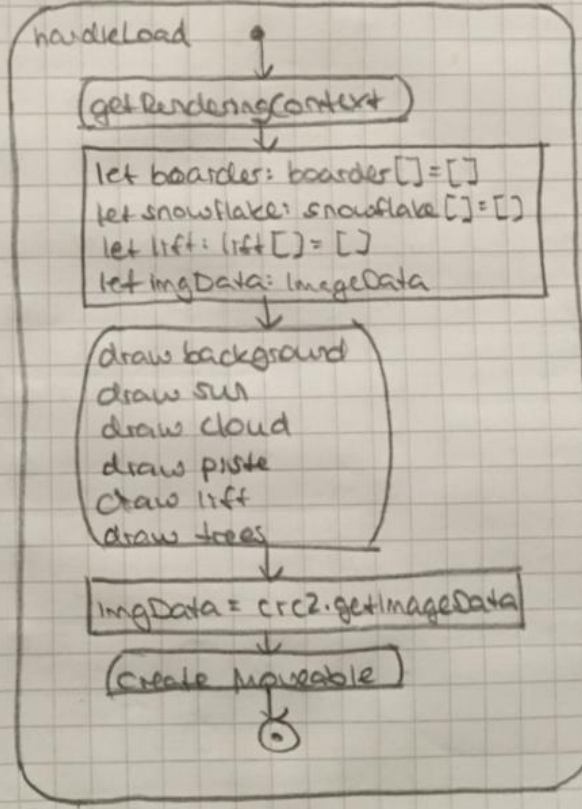 handleLoad
getRenderingContext
let boarder: boarder[] = []
let snowflake: snowflake[] = []
let lift: lift[] = []
let imgData: ImageData
draw background
draw sun
draw cloud
draw piste
draw lift
draw trees
imgData = crc2.getImageData
create Moveable